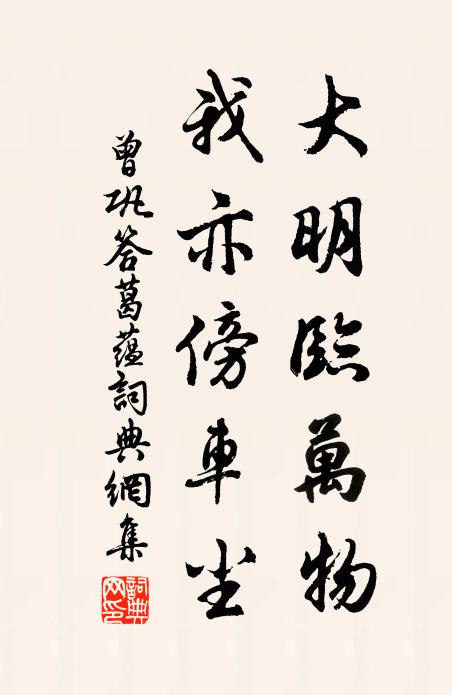 大明臨萬物
我亦傍車尘
曾巩荅葛蕴詞典網集
詞典
网印